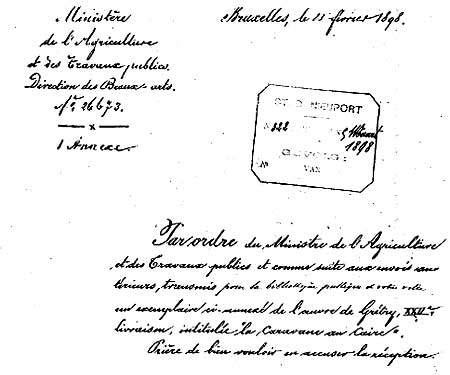 Ministère
de l'Agriculture
et des Travaux publics.
Direction des Beaux-arts.
N° 26673.
x
1 Annexe.
Bruxelles, le 11 février 1898.
ST D NIEUPORT
N 322
1898
VAN
Par ordre du Ministre de l'Agriculture
et des Travaux publics et comme suite aux envois an-
térieurs, transmis pour la bibliothèque publique de votre ville
un exemplaire ci-annexé de l'œuvre de Grétry,
livraison, intitulée "la Caravane au Caire".
Prière de bien vouloir en accuser la réception.